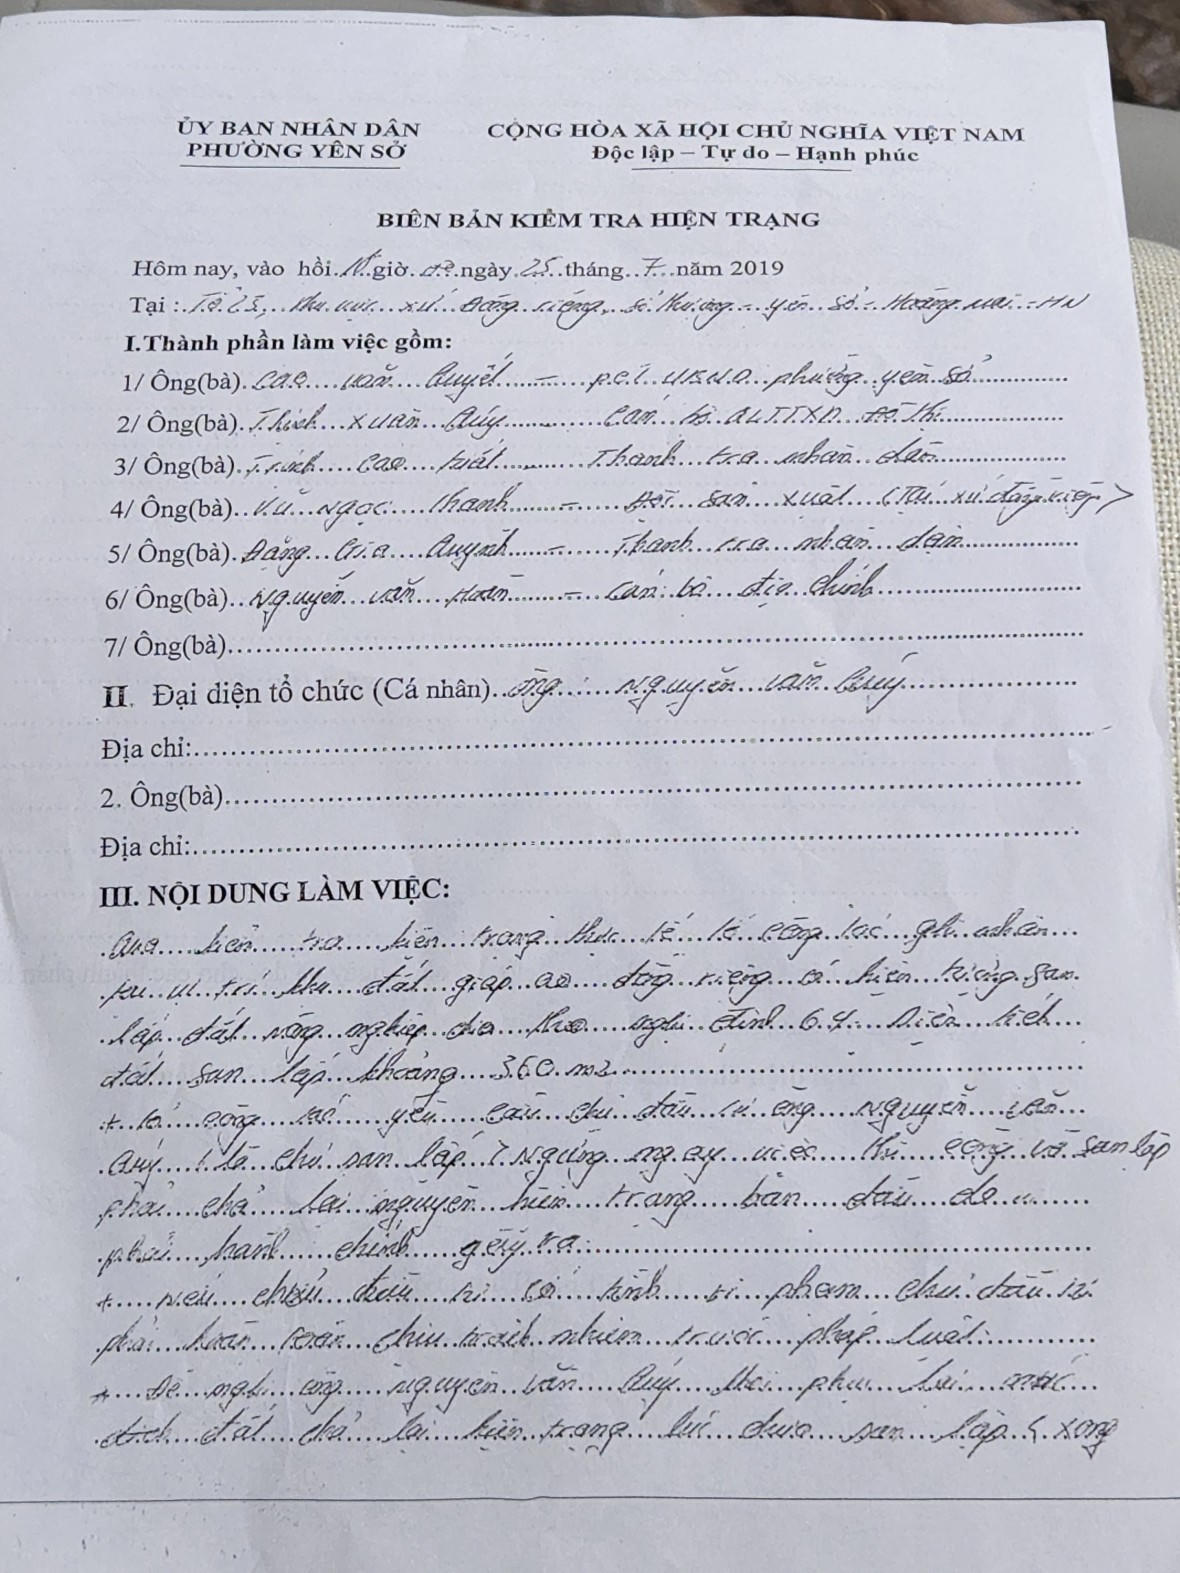 ỦY BAN NHÂN DÂN
PHƯỜNG YÊN SỞ
CỘNG HÒA XÃ HỘI CHỦ NGHĨA VIỆT NAM
Độc lập – Tự do – Hạnh phúc
BIÊN BẢN KIỂM TRA HIỆN TRẠNG
Hôm nay, vào hồi giờ ngày 25 tháng 7 năm 2019
Tại : khu vực xứ Đồng riêng, sở thượng - yên sở - Hoàng mai - HN
I.Thành phần làm việc gồm:
1/ Ông(bà) Cao văn Quyết - p.c.t UBND phường yên sở
2/ Ông(bà) Xuân Qúy Cán bộ QLTTXD Đô thị
3/ Ông(bà) Trịnh Cao Thanh tra nhân dân
4/ Ông(bà) Vũ Ngọc Thanh - Đội sản xuất
5/ Ông(bà) Đặng Quynh - Thanh tra nhân dân
6/ Ông(bà) Nguyễn văn - Cán bộ địa chính
7/ Ông(bà)
II. Đại diện tổ chức (Cá nhân) ông : Nguyễn văn Quý
Địa chỉ:
2. Ông(bà)
Địa chỉ:
III. NỘI DUNG LÀM VIỆC:
Qua kiểm tra hiện trạng thực tế tổ công tác ghi nhận
tại vị trí khu đất giáp ao đồng riêng có hiện tượng san
lấp đất nông nghiệp theo nghị định 64. Diện tích
đất san lấp khoảng 360 m2
+ tổ công tác yêu cầu chủ đầu tư ông Nguyễn văn
Quý (là chủ san lấp) Ngừng ngay việc thi công và san lấp
phải chả lại nguyên hiện trạng ban đầu do
phải hành chính gây ra
+ Nếu đầu tư cố tình vi phạm chủ đầu tư
phải hoàn toàn chịu trách nhiệm trước pháp luật.
+ Đề nghị ông Nguyễn văn Quý
đất chả lại hiện trạng lúc chưa san lấp xong